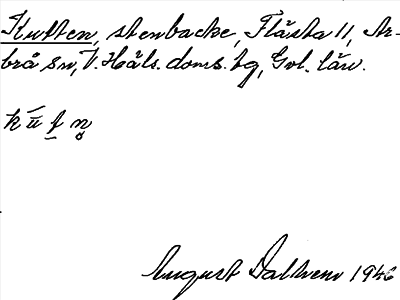 Kutten, stenbacke, Flästa 11, Ar-
brå sn, V. Häls. doms. tg, Gvl. län.
k ū́ t n̥
August Dalkvem 1946